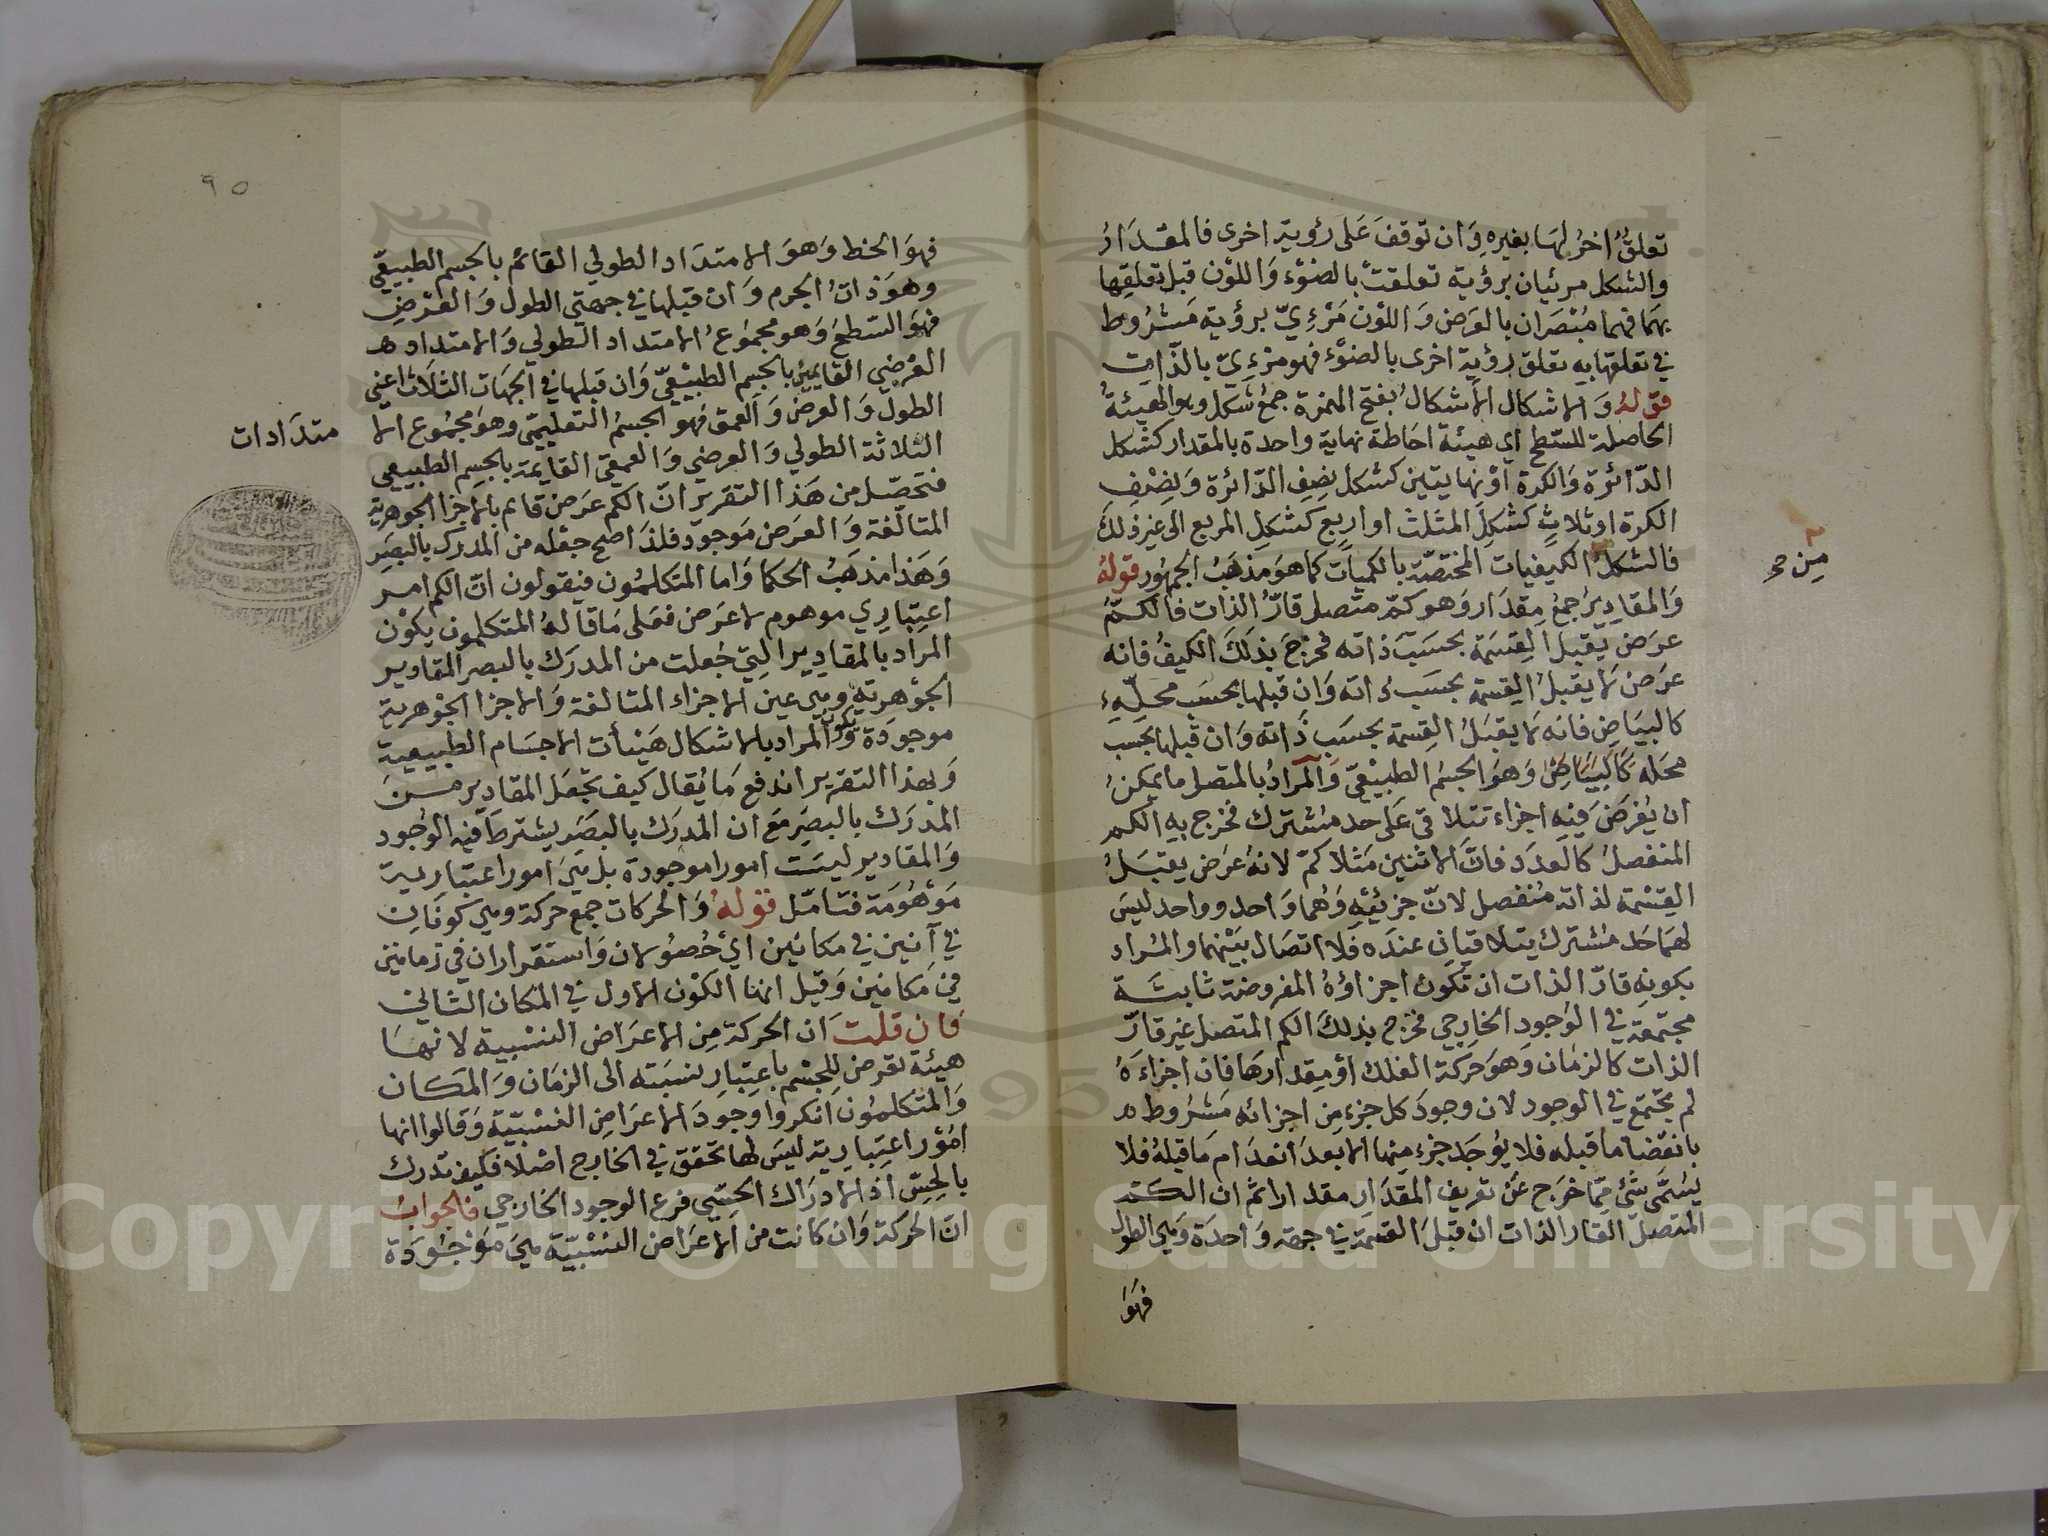 تعلقٌ اخر لها بغيره وان توقفَ عَلى رؤية اخرى فالمقدَارُ
والشكل مرئيان برؤية تعلقتْ بالضوْء وَاللوْن قبل تعلقِها
بهمَا فهما مُبْصَران بالعَرض وَاللوْن مَرْءِيّ برؤية مَشرُوط
في تعلقها به تعلق رؤية اخرى بالضوْء فهو مرْءِيّ بالذّات
قوْلهُ وَالاشكال الأشكالُ بفتح الهمزة جمعُ شَكل وهو الهيئةُ
الحاصلة للسّطح اي هيئة احَاطة نهاية واحدة بالمقدار كشكل
الدّائرة وَالكرة اوْ نهايتين كشكل نِصفِ الدّائرة وَنِصْفِ
الكرة او ثلاثٍ كشكلَِ المثلث او اربع كشكل المربع الى غير ذلكَ
فالشكلُ الكيفيات المختصّة بالكميات كما هوَ مَذهَبُ الجمهُور قولهُ
من صح
وَالمقادِيرُ جمعُ مِقدَار وَهو كمّ متصل قارُّ الذات فالكمّ
عرَض يقبلُ القِسمَة بحسَب ذاته فخرجَ بذلكَ الكيفُ فانه
عرَض لا يقبلُ القِسمة بحسَب ذاته وَان قبلها بحسَب محلّهِ
كالبيَاضِ فانه لا يقبَلُ القِسمة بحسَب ذاته وَان قبلها بحسب
محَله كالبيَاض وَهوَ الجسْم الطبيْعيّ وَالمرادُ بالمتصل ما يمكنُ
ان يُفرَضَ فيْهِ اجزاء تتلاقى عَلى حد مُشترك فخرج به الكم
المنفصلُ كالعدَد فانَّ الاثنين مَثلا كمّ لانهُ عَرض يقبَلُ
القِسْمَة لذاته مُنفصل لانّ جزئيْهِ وَهُما وَاحد وواحد ليسَ
لهمَا حَد مُشترك يتلاقيَانِ عندَه فلا اتصَال بيْنهما والمُراد
بكونِه قارّ الذات ان تكون اجزاؤهُ المفروضة ثابتَة
مجتمعة في الوُجود الخارِجي فخرج بذلكَ الكم المتصل غير قارّ
الذات كالزمَان وَهوَ حَركة الفلك اوْ مِقدارهَا فان اجزاءَهُ
لم تجتمع في الوجود لان وجودَ كل جزء مِن اجزائه مَشرُوط
بانقضا ما قبله فلا يوُجَد جزء مِنها الا بعدَ انعدَام مَا قبلهُ فلا
يسَمَّى شيْ ممّا خرَج عَنْ تعريف المقدَارِ مقدارا ثم ان الكَمّ
المتصلّ القار الذات ان قبلَ القسمَة في جهة وَاحدَة وَهي الطول
فهوَ
٩٥
فهوَ الخط وَهوَ الامتدَاد الطولي القائم بالجسم الطبيعيّ
وهوَ ذاتُ الجرم وَان قبلها في جهتي الطول وَالعَرْضِ
فهوَ السّطحُ وَهو مجموُعُ الامتداد الطولي وَالامتداد
العَرْضي القايمين بالجسم الطبيْعيّ وَان قبلها في الجهَات الثلَاث اعني
الطول وَالعرض وَالعمق فهو الجسمُ التعليميّ وهوَ مجمُوع الا
متدَادات
الثلاثة الطولي وَالعرضي وَالعمقي القايمة بالجسم الطبيعي
فتحصّل من هَذا التقرير انّ الكم عَرَض قائم بالاجزا الجوهرية
المتالّفة وَالعرَض مَوجود فلذا صح جعْله من المدرك بالبصَرِ
وَهَذا مَذهَبُ الحكما وَاما المتكلمُون فيَقولون انّ الكم امر
اعتِبارِي موهوم لا عَرَض فعَلى مَا قالهُ المتكلمون يكوْن
المراد بالمقادِيرِ التِي جُعلت من المدرَك بالبصر المقادير
الجوْهرية وهي عين الاجزاء المتالفة وَالاجزا الجوْهرية
موجودَة ويكون المراد بالاشكال هَيْئات الاجسَام الطبيعية
وَبهذا التقرير اندفع مَا يُقال كيف تجْعَل المقادِيرَ مِن
المدرَك بالبصَرِ مَع ان المدرَك بالبصَرِ يشترط فيْه الوُجود
وَالمقادير ليسَت امورا موجودة بل هيَ امور اعتبارية
مَوْهُومَة فتامّل قوْلهُ وَالحركات جمع حَركة وهي كوْنَان
في آنين في مكانين ايْ حُصُولان وَاستقراران في زمانين
في مَكانين وَقيل انها الكوْن الاول في المكان الثاني
فان قلت ان الحركة مِن الاعرَاض النسْبية لانهَا
هيئة تعرض للجسْم باعتِبارِ نسبَته الى الزمَان وَالمَكان
وَالمتكلمُون انكروا وجودَ الاعرَاضِ النسْبيّة وَقالوا انها
امُوْر اعتِبارية ليسَ لها تحقق في الخارج اصْلا فكيْف تدرك
بالحِسّ اذ الادرَاك الحِسّي فرع الوجود الخارجي فالجوابُ
انّ الحركة وَان كانت من الاعرَاض النسْبيّة هيَ مَوْجُودَة
Copyright © King Saud University